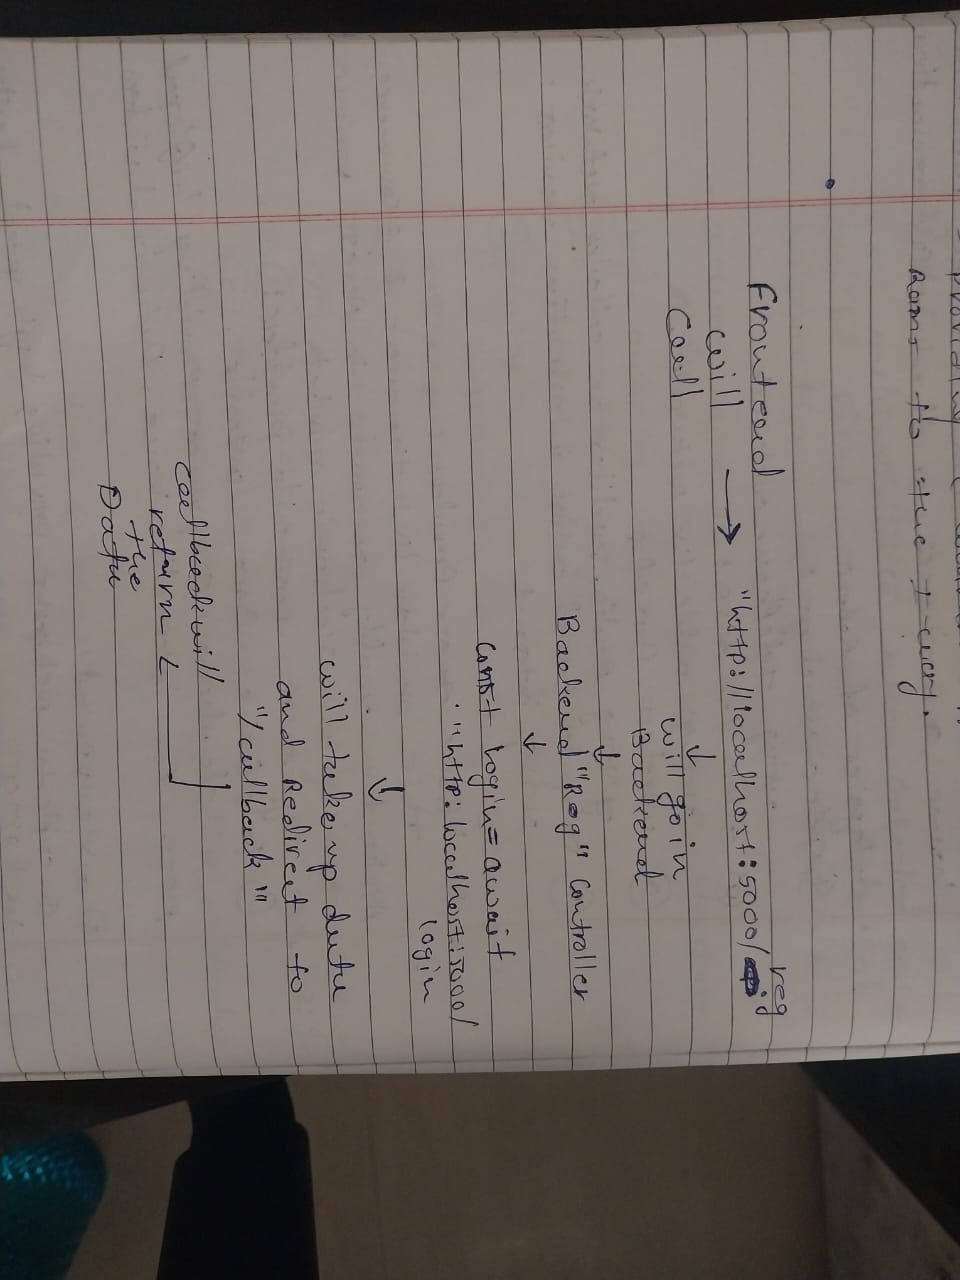 Rams to the
Frontend
will → "http://localhost:5000/ reg
Call
↓
will go in
Backend
↓
Backend "Reg" controller
↓
const login = await
"http:localhost:5000/
login
↓
will take up data
and Redirect to
"/callback"
callback will
return
the
Data